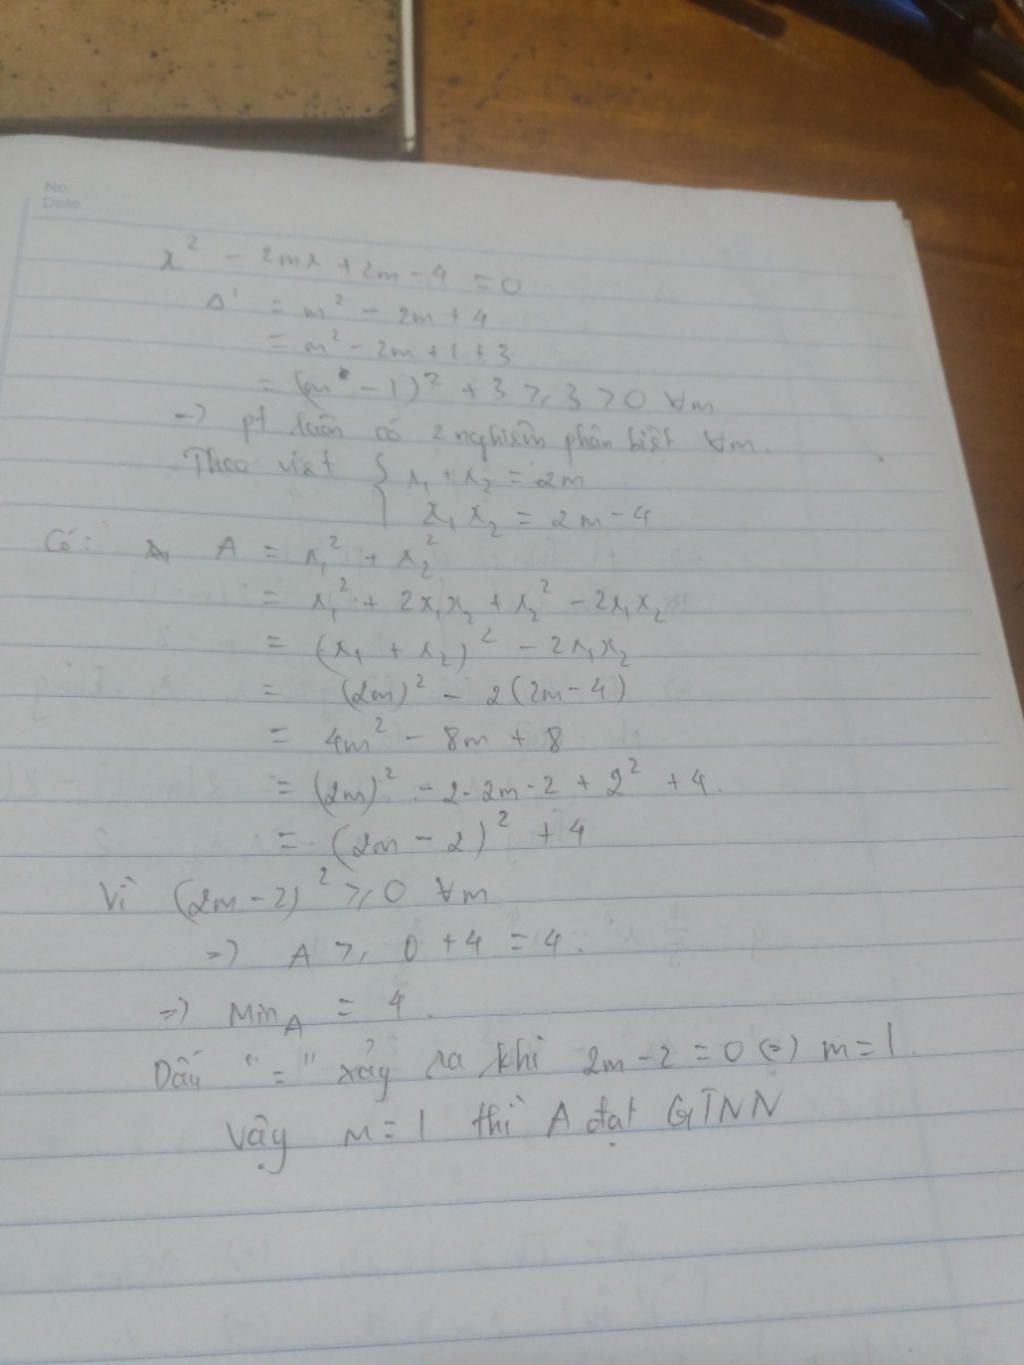 No.
Date
x² - 2mx + 2m - 4 = 0
Δ' = m² - 2m + 4
= m² - 2m + 1 + 3
= (m - 1)² + 3 ≥ 3 > 0 ∀m
-> pt luôn có 2 nghiệm phân biệt ∀m.
Theo viet { x₁ + x₂ = 2m
x₁ x₂ = 2m - 4
Có: A = x₁² + x₂²
= x₁² + 2x₁x₂ + x₂² - 2x₁x₂
= (x₁ + x₂)² - 2x₁x₂
= (2m)² - 2(2m - 4)
= 4m² - 8m + 8
= (2m)² - 2·2m·2 + 2² + 4.
= (2m - 2)² + 4
Vì (2m - 2)² ≥ 0 ∀m
=> A ≥ 0 + 4 = 4.
=> Min_A = 4.
Dấu "=" xảy ra khi 2m - 2 = 0 (=) m = 1.
Vậy m = 1 thì A đạt GTNN